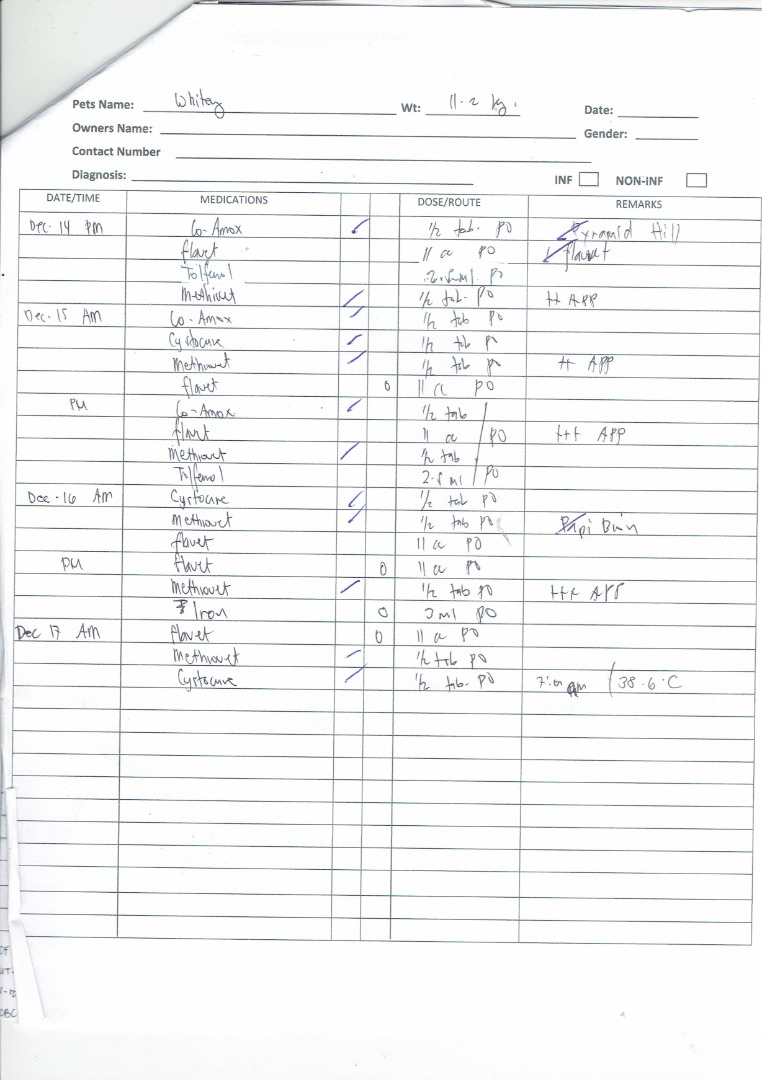 Pets Name: Whitey Wt: 11.2 kg. Date:
Owners Name: Gender:
Contact Number
Diagnosis: INF NON-INF
DATE/TIME MEDICATIONS DOSE/ROUTE REMARKS
Dec. 14 PM Co-Amox ✓ 1/2 tab. PO Pyramid Hill
flavet 11 cc PO flavet
Tolfenol 2.5 ml. PO
Methiovet / 1/2 tab. PO ++ APP
Dec. 15 AM Co-Amox / 1/2 tab PO
Cystocure / 1/2 tab PO
Methiovet / 1/2 tab PO ++ APP
flavet 0 11 cc PO
PM Co-Amox ✓ 1/2 tab
flavet 11 cc PO +++ APP
Methiovet / 1/2 tab
Tolfenol 2.5 ml PO
Dec. 16 AM Cystocure ✓ 1/2 tab PO
Methiovet ✓ 1/2 tab PO
flavet 11 cc PO
PM flavet 0 11 cc PO
Methiovet / 1/2 tab PO +++ APP
Iron 0 3 ml PO
Dec 17 AM flavet 0 11 cc PO
Methiovet / 1/2 tab PO
Cystocure / 1/2 tab. PO 38.6°C